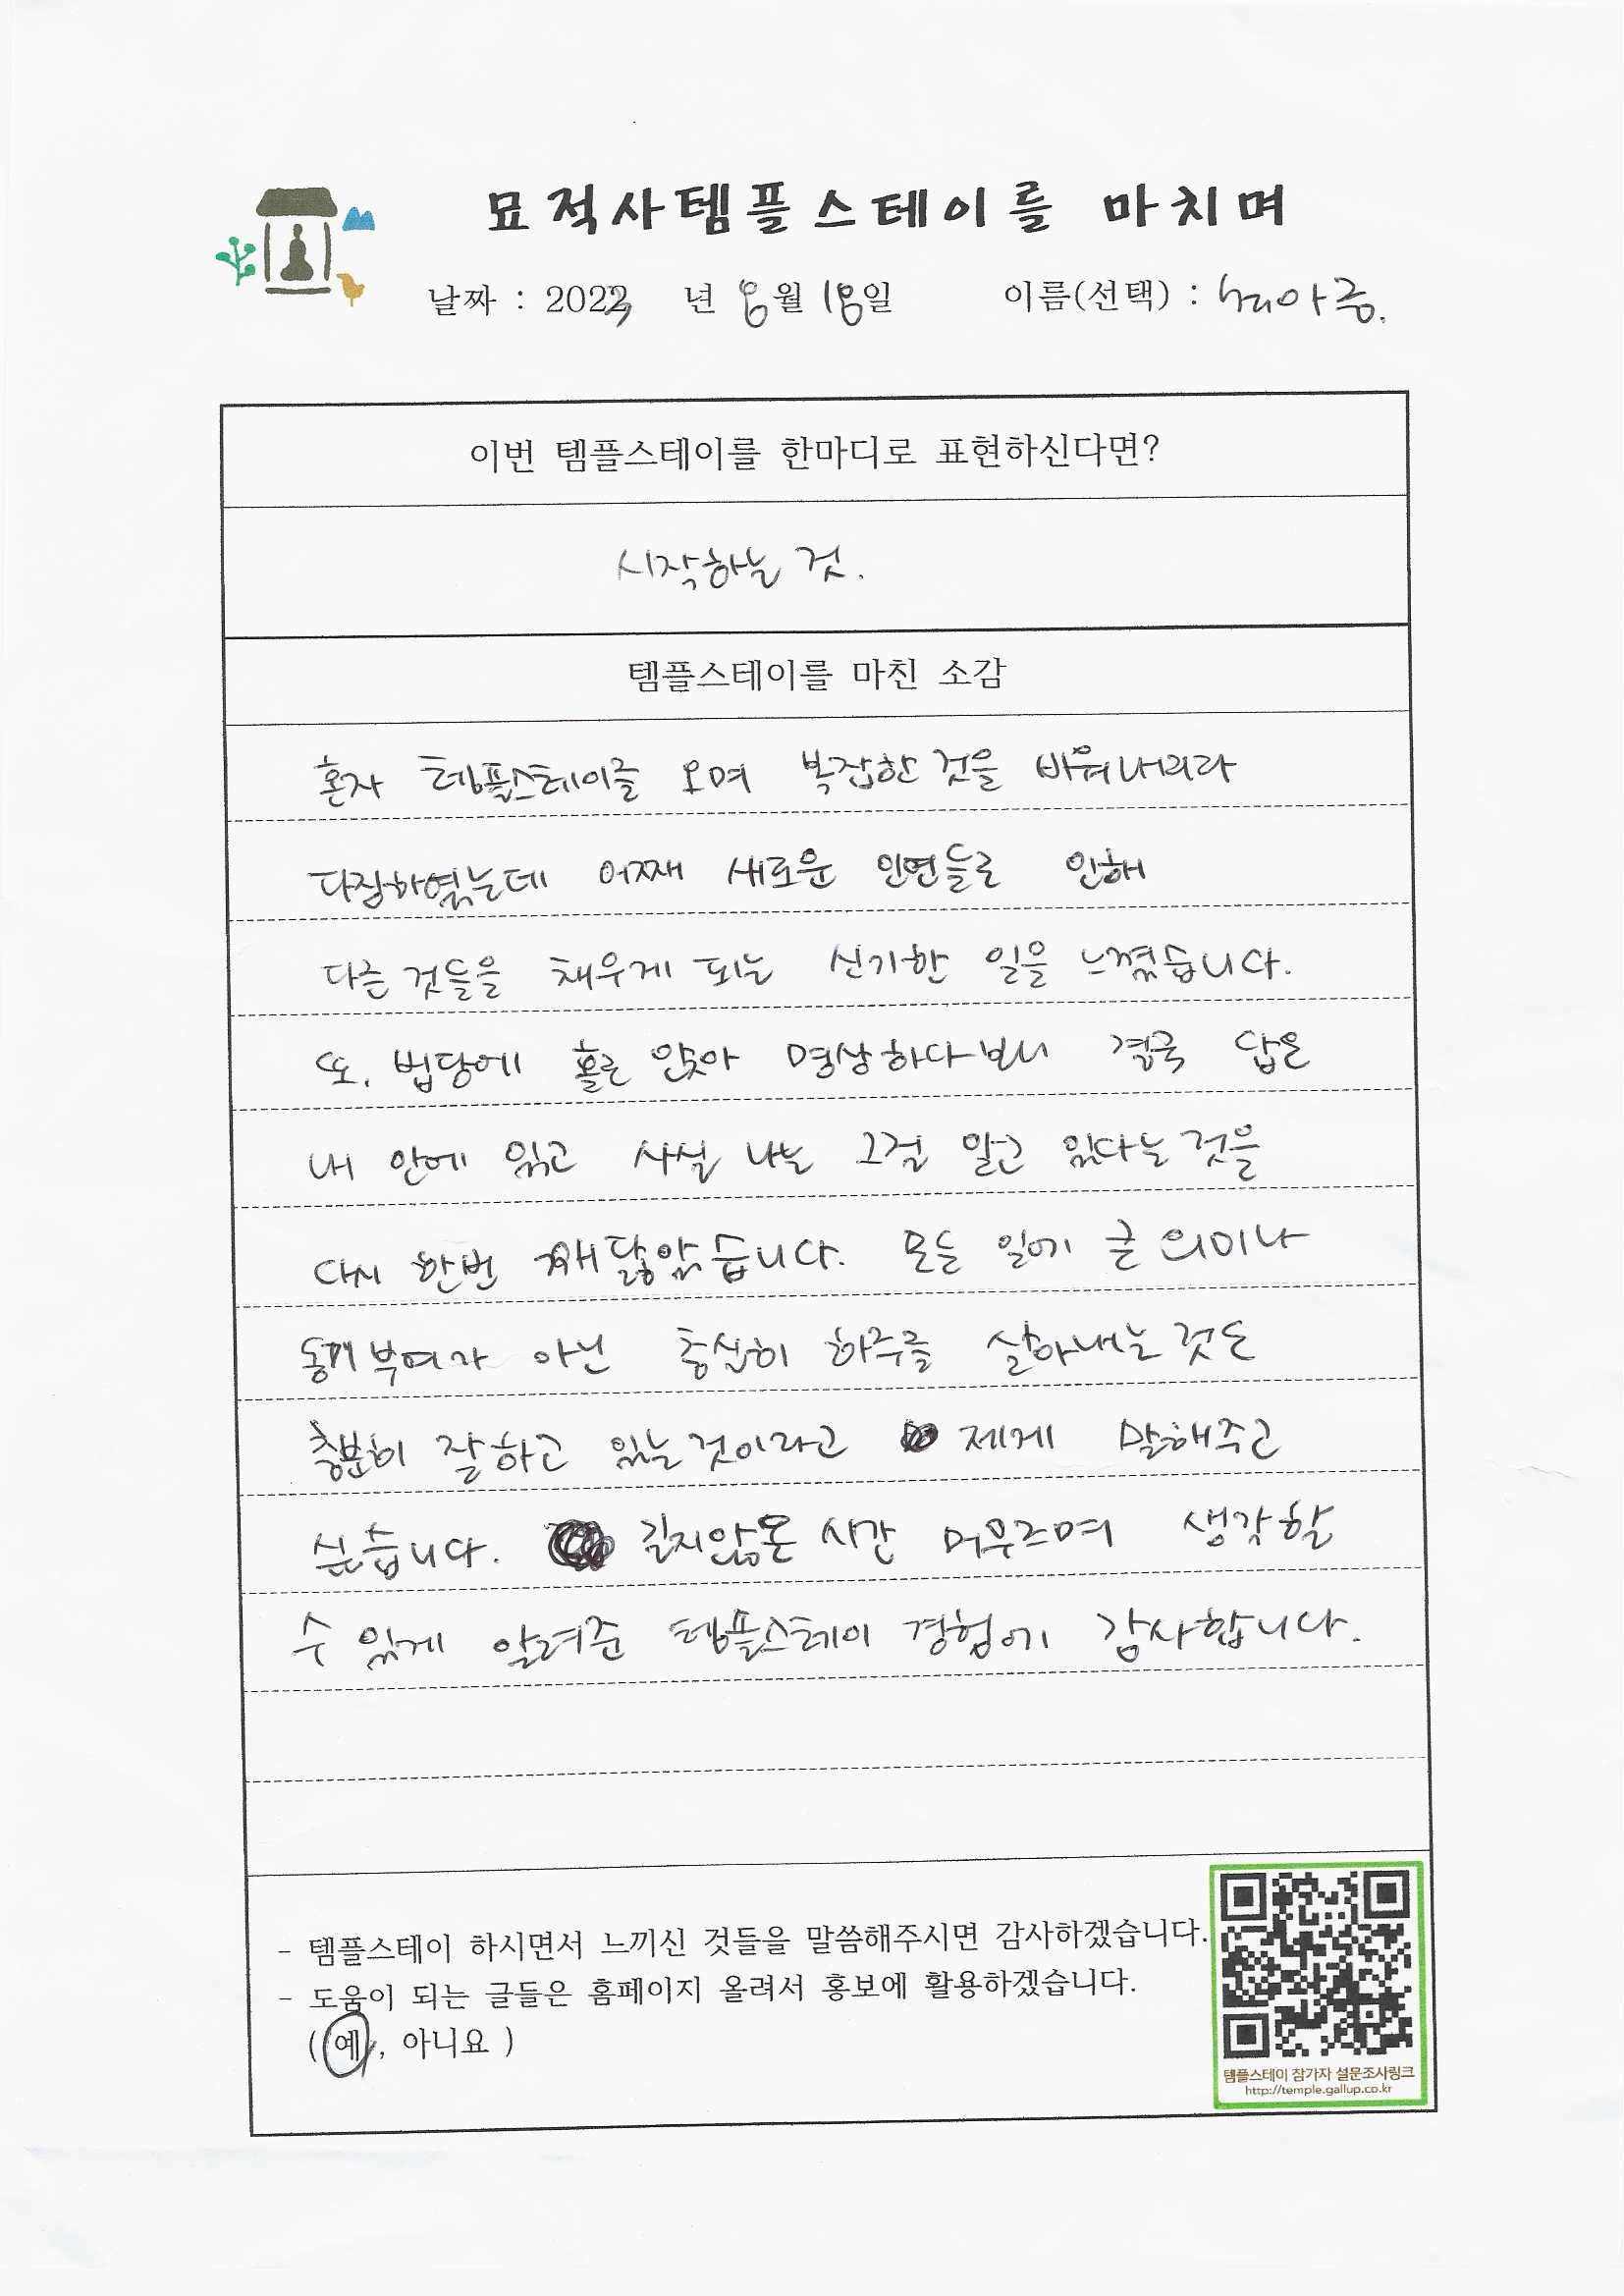 묘적사템플스테이를 마치며
날짜 : 2023 년 8월 18일 이름(선택) :
이번 템플스테이를 한마디로 표현하신다면?
시작하는 것.
템플스테이를 마친 소감
혼자 템플스테이를 오며 복잡한 것을 비워내리라
다짐하였는데 어째 새로운 인연들로 인해
다른 것들을 채우게 되는 신기한 일을 느꼈습니다.
또, 법당에 홀로 앉아 명상하다보니 결국 답은
내 안에 있고 사실 나는 그걸 알고 있다는 것을
다시 한번 깨달았습니다. 모든 일에 큰 의미나
동기부여가 아닌 충실히 하루를 살아내는 것도
충분히 잘하고 있는 것이라고 제게 말해주고
싶습니다. 길지않은 시간 머무르며 생각할
수 있게 알려준 템플스테이 경험에 감사합니다.
- 템플스테이 하시면서 느끼신 것들을 말씀해주시면 감사하겠습니다.
- 도움이 되는 글들은 홈페이지 올려서 홍보에 활용하겠습니다.
( 예 , 아니요 )
템플스테이 참가자 설문조사링크
http://temple.gallup.co.kr